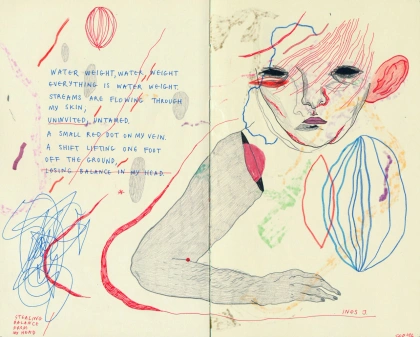 WATER WEIGHT, WATER WEIGHT
EVERYTHING IS WATER WEIGHT.
STREAMS ARE FLOWING THROUGH
MY SKIN,
UNINVITED, UNTAMED.
A SMALL RED DOT ON MY VEIN.
A SHIFT LIFTING ONE FOOT
OFF THE GROUND,
LOSING BALANCE IN MY HEAD.
STEALING
BALANCE
FROM
MY HEAD
INUS J